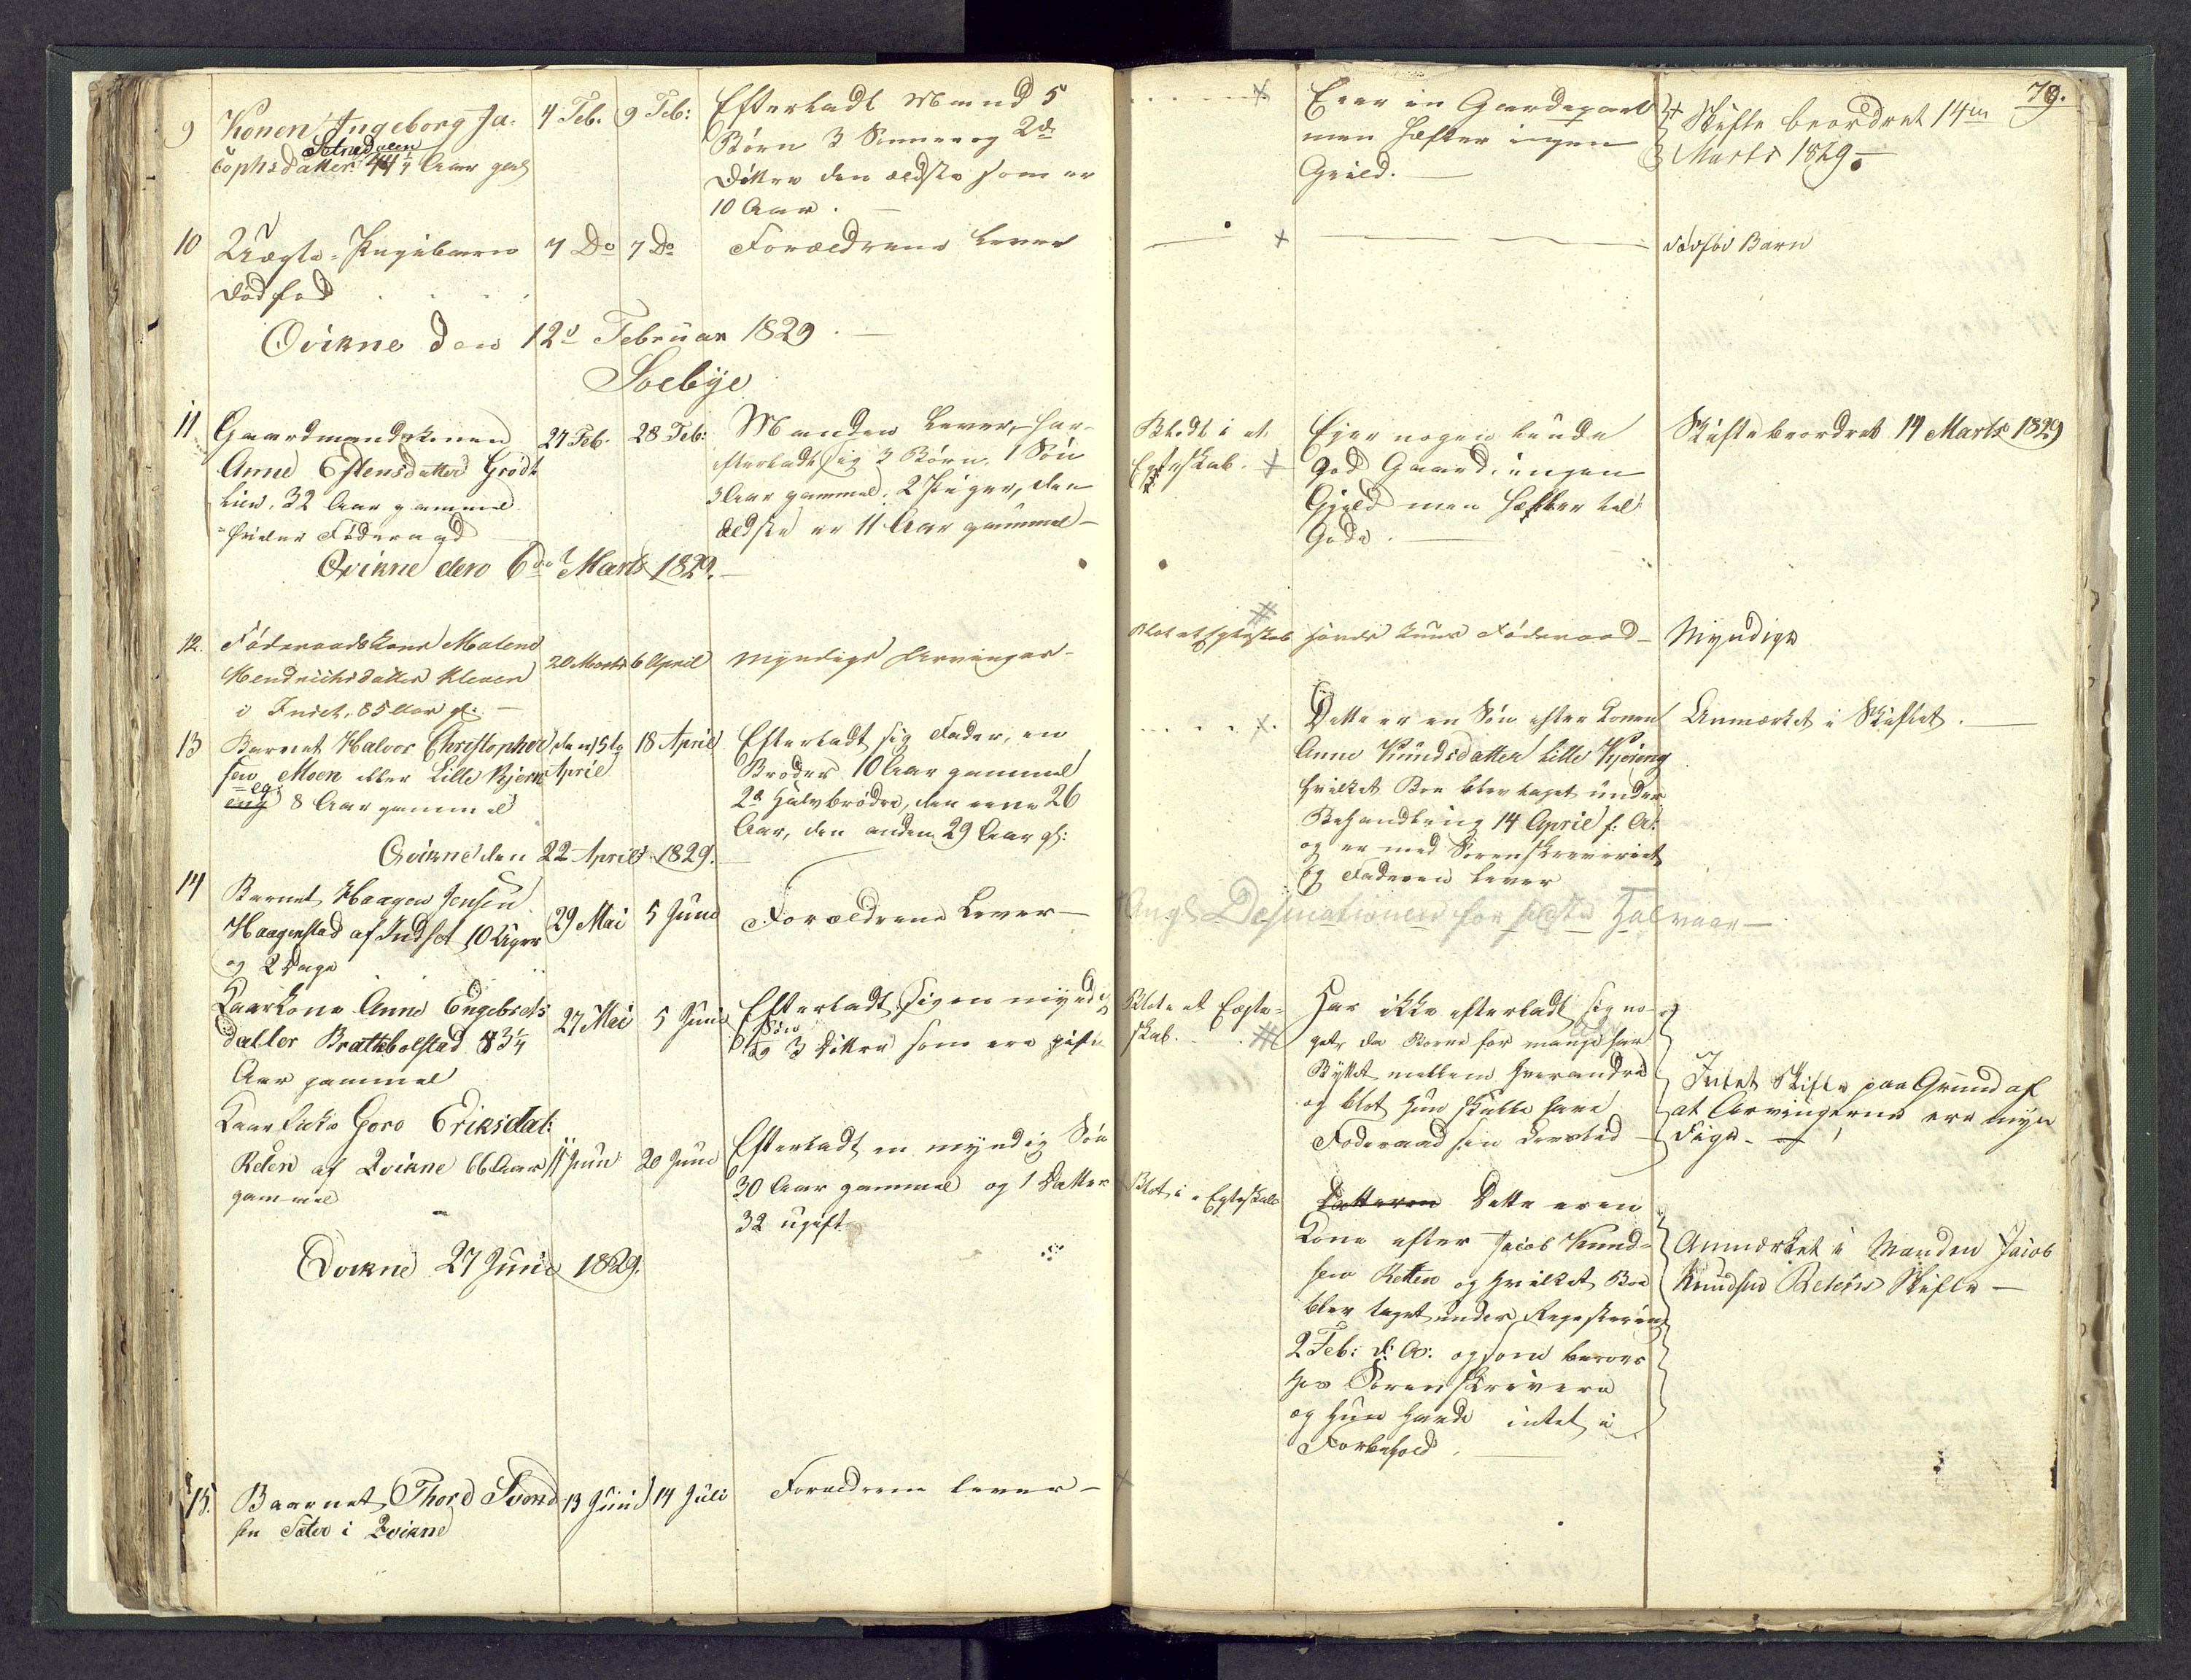 79.
9 Konen Ingeborg Ja-
cophsdatter 44 1/4 Aar gl
4 Feb. 9 Feb:
Efterladt Mand 5
Børn 3 Sønner og 2de
Døttre den ældste som er
10 Aar.
Eier en Gaardepart
men hefter ingen
Gield.
Skifte beordret 14de
Marts 1829.
10 Uægte Pigebarn
dødfød
7 Do 7 Do
Forældrene lever
dødfød Barn
Qvikne den 12te Februar 1829
Soebye
11 Gaardmandskonen
Anne Estensdatter Grødt
lien, 32 Aar gammel
27 Feb. 28 Feb:
Manden lever, har
efterladt sig 3 Børn, 1 Søn
3 Aar gammel, 2 Piger, den
ældste er 11 Aar gammel
Blodt i et
Egteskab.
Ejer nogen
god Gaard, ingen
Gjeld men hefter
Gods.
Skifte beordret 14 Marts 1829
Qvikne den 6de Marts 1829.
12. Føderaadskone Malene
Hendrichsdatter Kleven
i Indset, 85 Aar gl.
20 Marts 6 April
Myndige Arvinger
Blot et Egteskab
havde kuns Føderaad
Myndige
13 Barnet Halvor Christopher
sen Moen eller Lille Kjøren
eng 8 Aar gammel
den 15te
April
18 April
Efterladt sig Fader, en
Broder 10 Aar gammel
2de Halvbrødre, den eene 26
Aar, den anden 29 Aar gl:
Dette er en Søn efter Konen
Anne Knudsdatter Lille Kjøreng
hvilket Boe blev taget under
Behandling 14 April f: A:
og er med Sorenskriveriet
og Faderen lever
Anmærket i Skiftet.
Qvikne den 22 April 1829.
14 Barnet Haagen Jensen
Haagenstad af Indset 10 Uger
og 2 Dage
29 Mai 5 Juni
Forældrene Lever
Designationen for første Halvaar
Kaarkone Anne Engebrets
datter Brattbolstad 83 1/4
Aar gammel
27 Mei 5 Juni
Efterladt sig en myndig
Søn
og 3 Døttre som ere gifte
Blot et Eegte-
skab.
Har ikke efterladt sig no-
get, da Børne for mange Aar
Byttet mellem hverandre
og blot hun skulle have
Føderaad sin Levetid
Intet Skifte paa Grund af
at Arvingerne ere myn
dige.
Kaar Goro Eriksdat:
Reten af Qvikne 66 Aar
gammel
11 Juni 20 Juni
Efterladt en myndig Søn
30 Aar gammel og 1 Datter
32 ugift
Blot i Egteskab
Datteren Dette er en
Kone efter Jacob Knud-
sen Retten og hvilket Boe
blev taget under Registering
2 Feb: d: A: og som beroer
hos Sorenskrivere
og hun havde intet i
Forbehold.
Anmærket i Manden Jacob
Knudsen Retens Skifte
Qvikne 27 Juni 1829.
15. Baarnet Thore Svend
sen Sæter i Qvikne
13 Juni 14 Juli
Forældrene lever